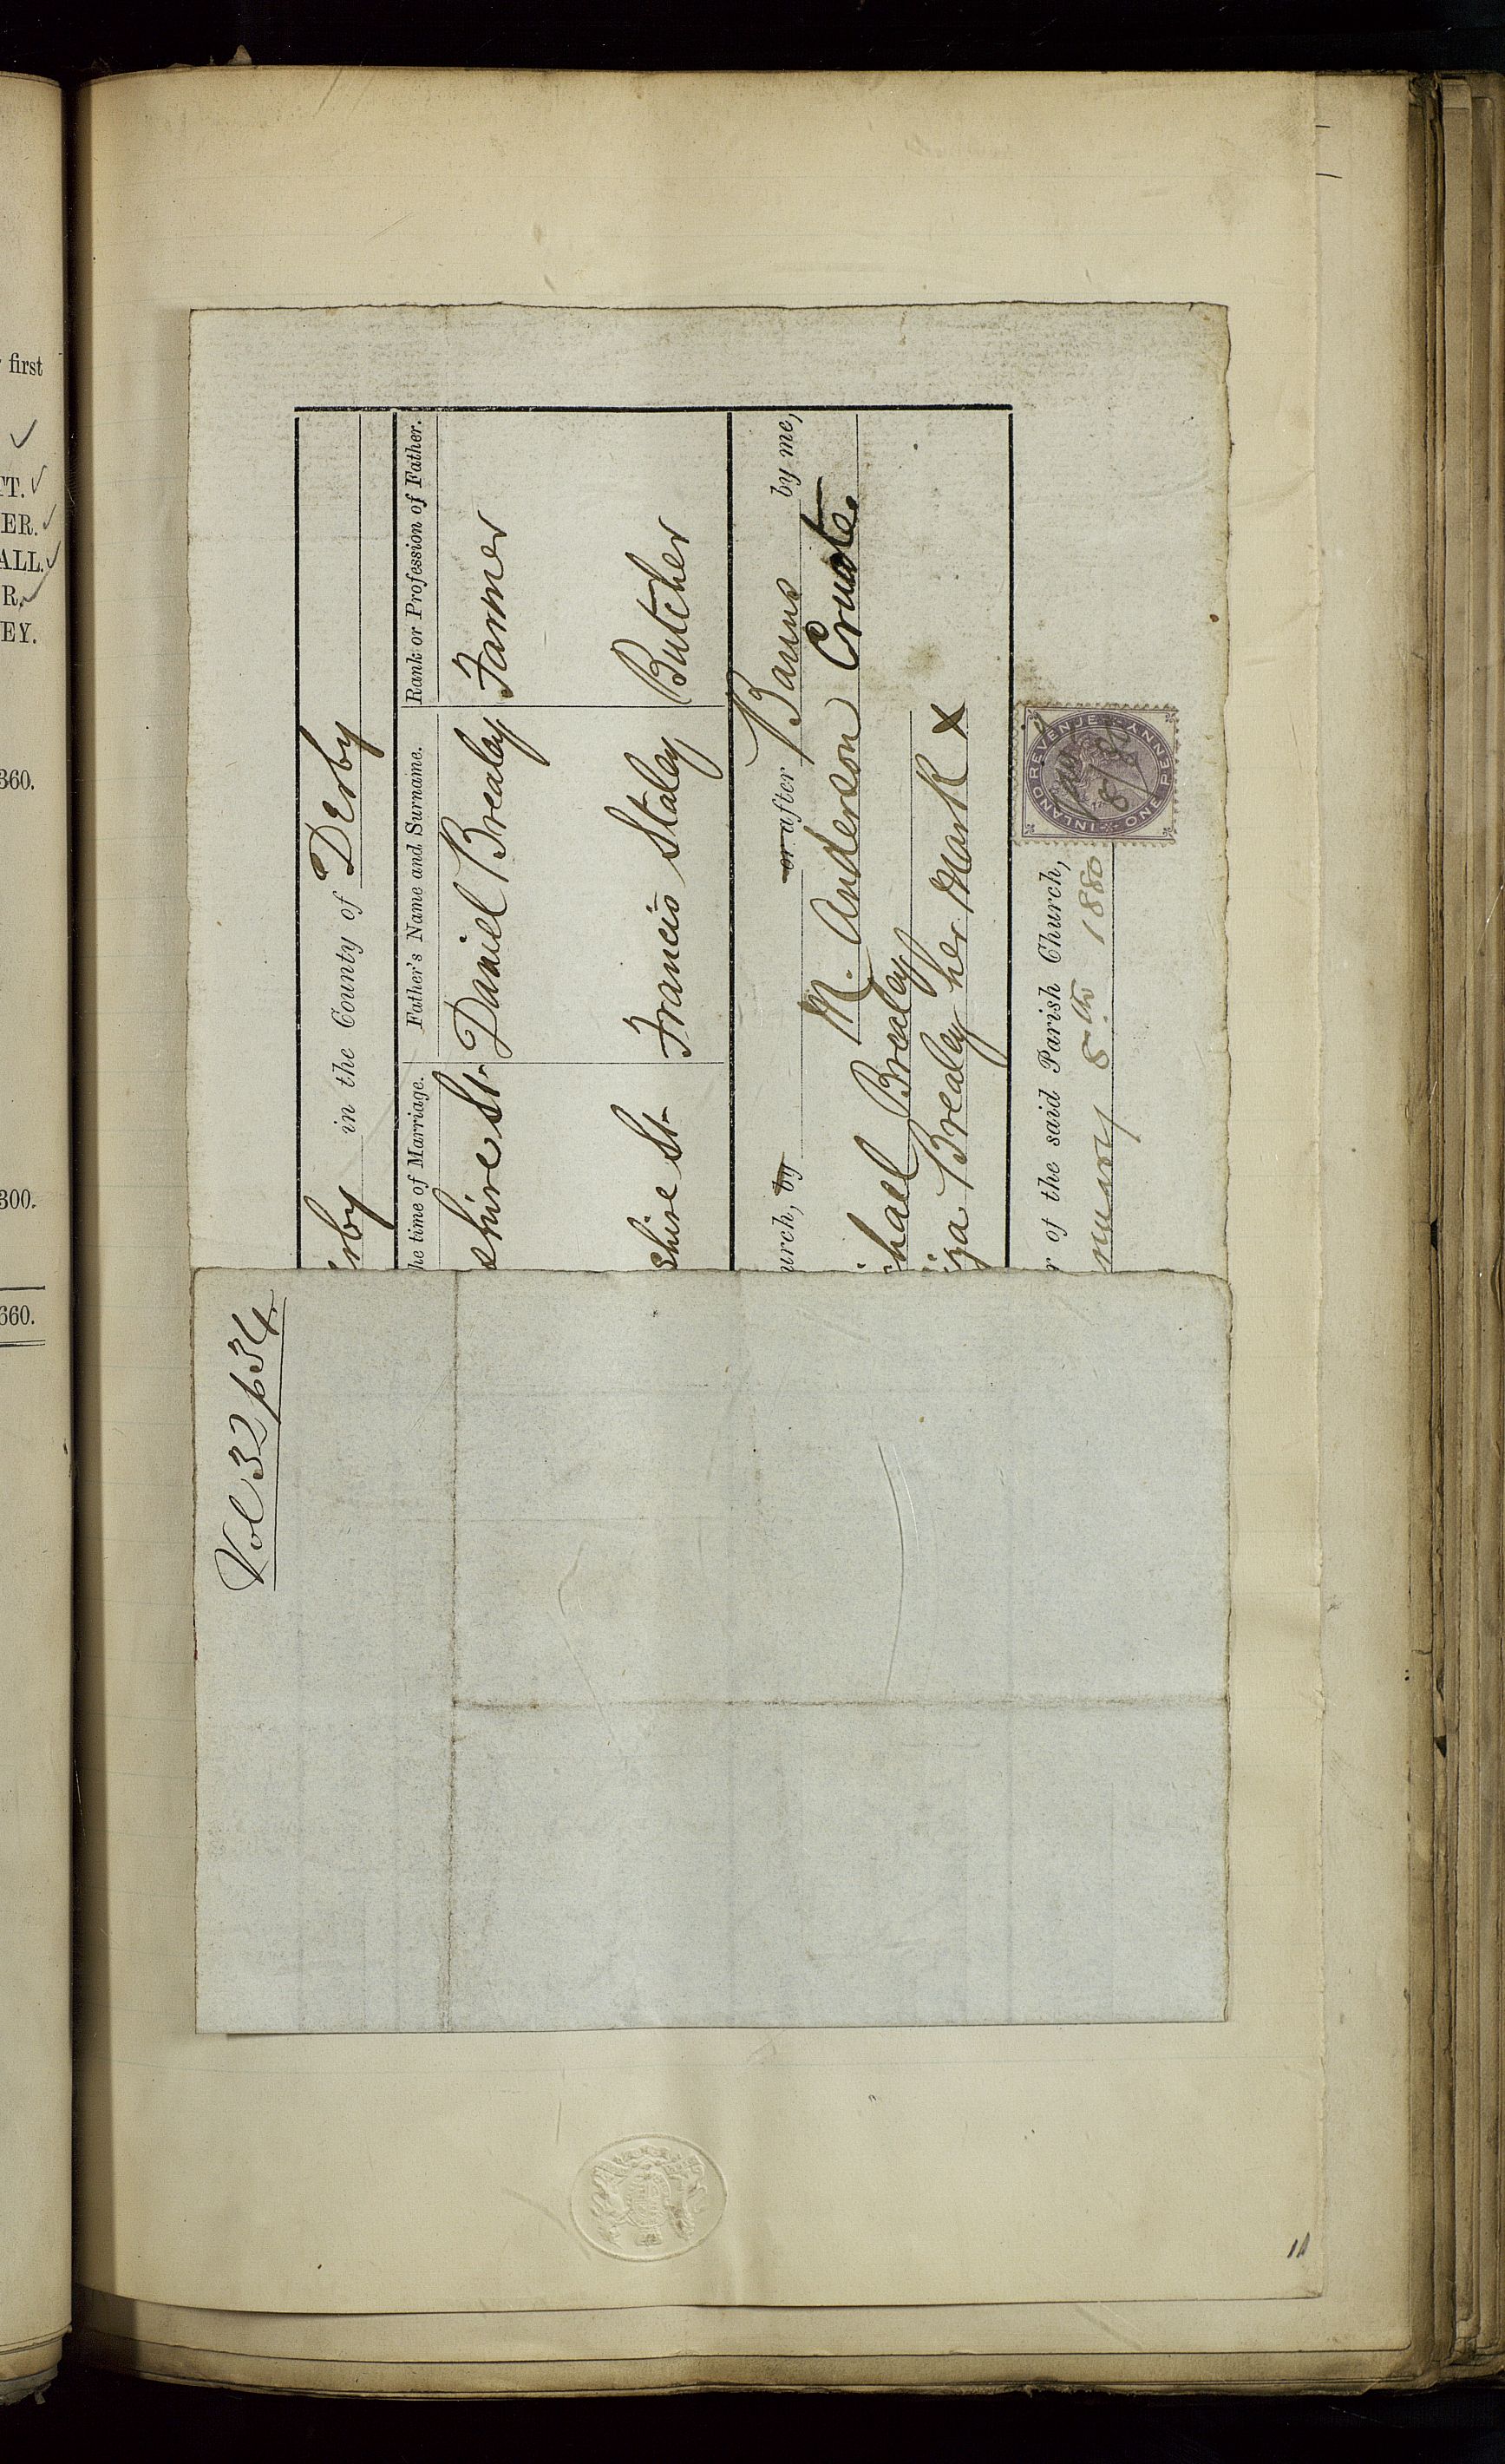 first
TT.
ER.
ALL.
R.
EY.
360.
300.
660.
Vol 32 p 34
erby in the County of Derby
he time of Marriage. Father's Name and Surname. Rank or Profession of Father.
shire St. Daniel Brealey Farmer
shire St. Francis Staley Butcher
urch, by or after Banns by me,
M. Anderson Curate
chall Brealey
iza Brealey her Mark X
r of the said Parish Church,
nuary 8th 1880
INLAND REVENUE
ONE PENNY
11